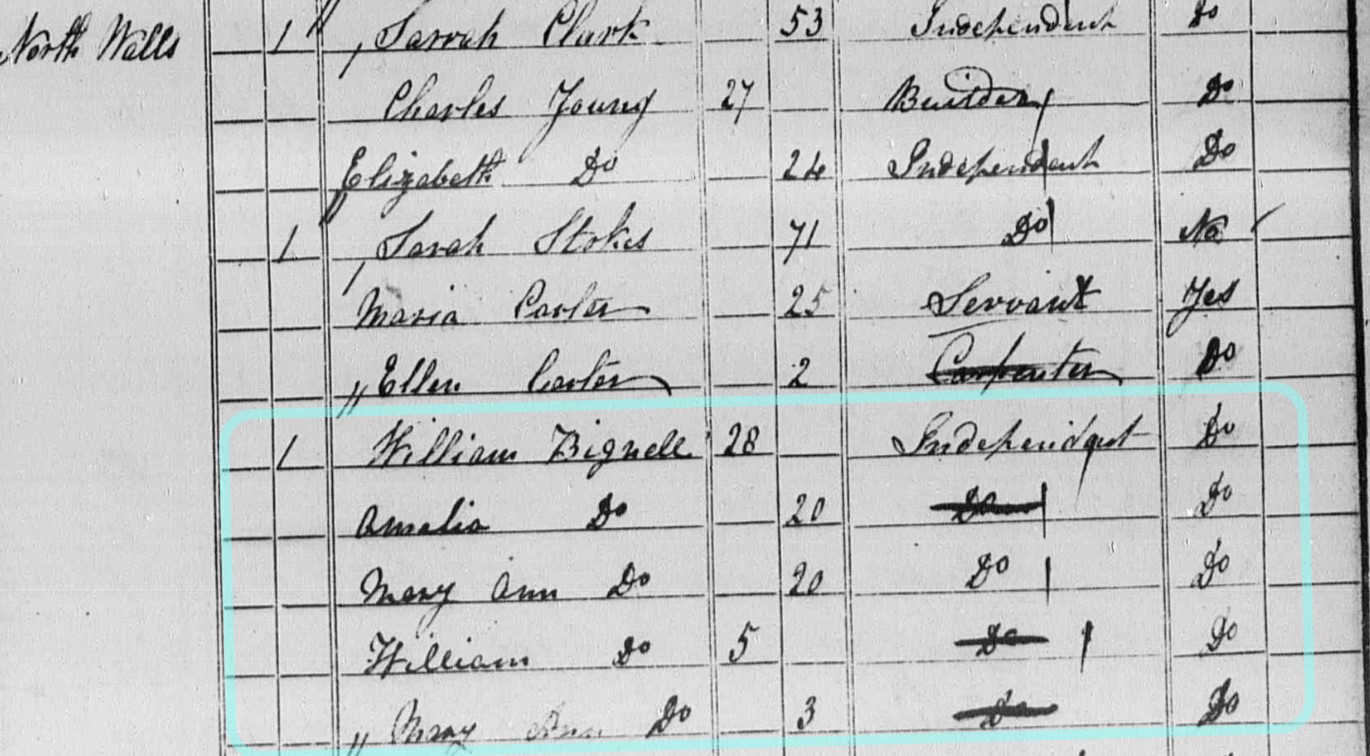 North Walls 1 Sarrah Clark 53 Independent Do
Charles Young 27 Builder Do
Elizabeth Do 24 Independent Do
1 Sarah Stokes 71 Do No
Maria Carter 25 Servant Yes
Ellen Carter 2 Carpenter Do
1 William Bignell 28 Independent Do
Amelia Do 20 Do Do
Mary Ann Do 20 Do Do
William Do 5 Do Do
Mary Ann Do 3 Do Do